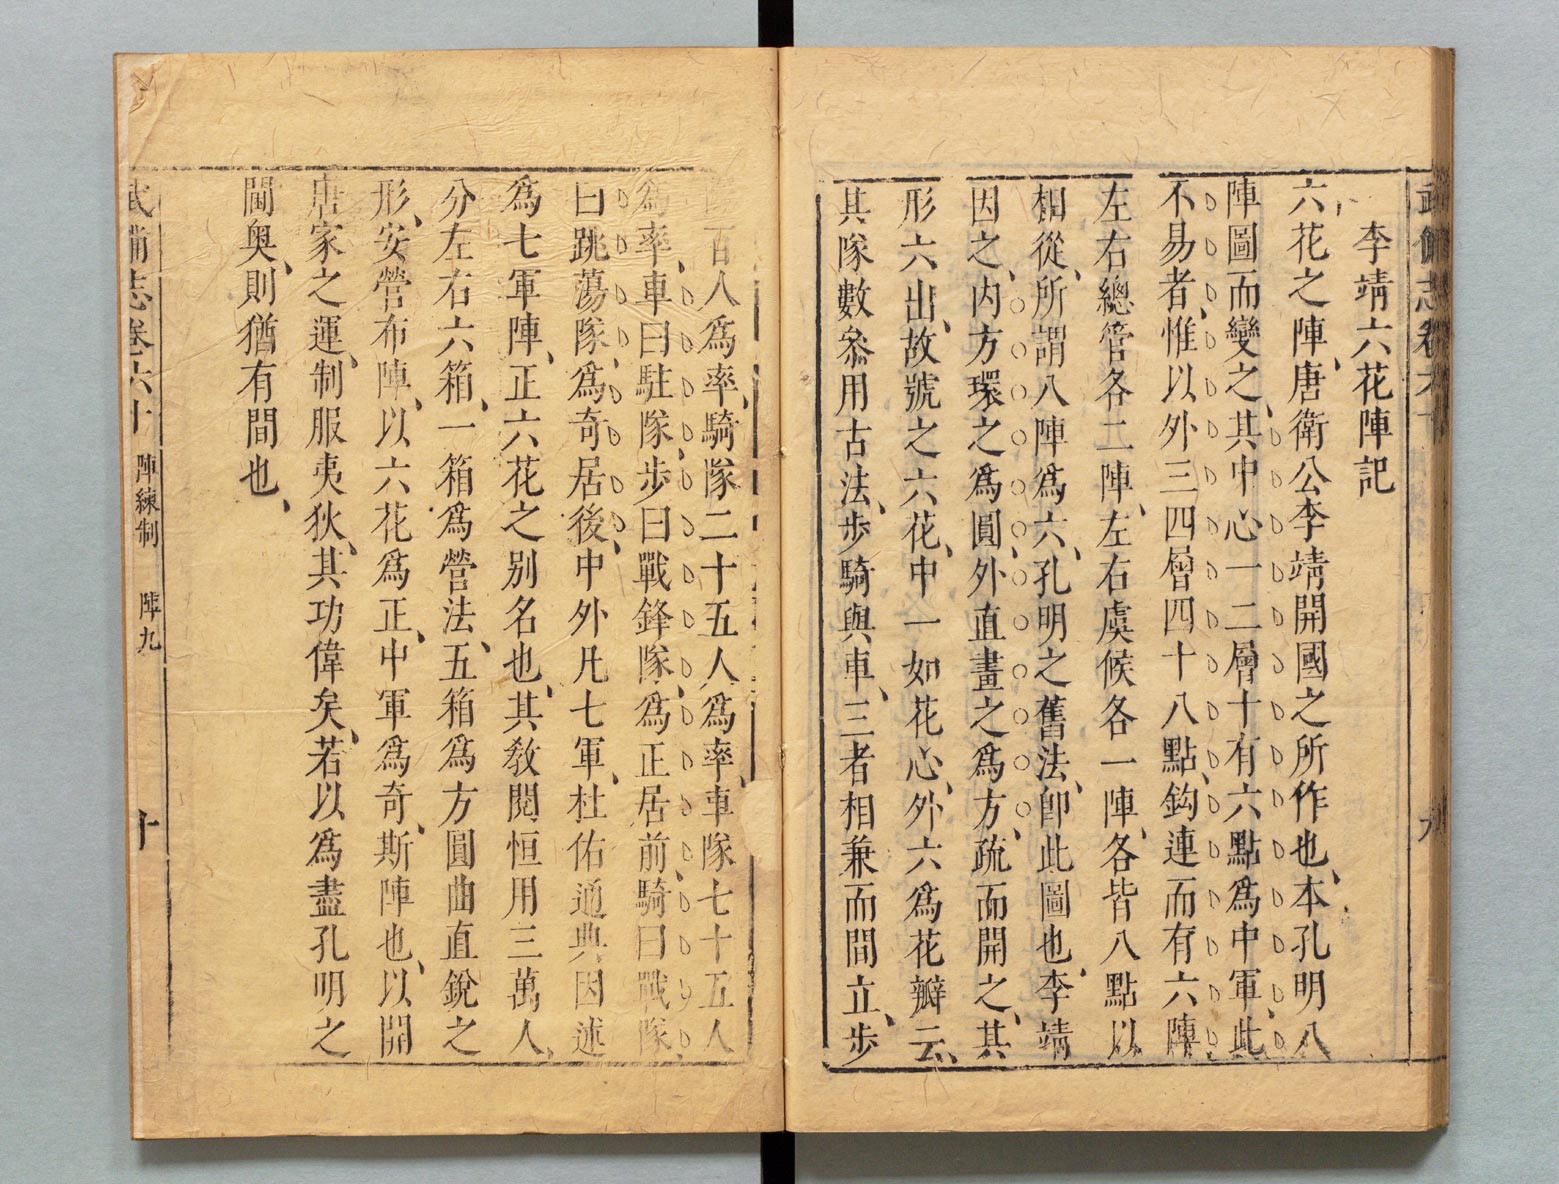 武備志卷六十
九
李靖六花陣記
六花之陣、唐衛公李靖開國之所作也、本孔明八
陣圖而變之、其中心一二層十有六點爲中軍、此
不易者、惟以外三四層四十八點、鈎連而有六陣、
左右總管各二陣、左右虞候各一陣、各皆八點以
相從、所謂八陣爲六、孔明之舊法、卽此圖也、李靖
因之、內方環之爲圓、外直畫之爲方、疏而開之、其
形六出、故號之六花、中一如花心、外六爲花瓣云、
其隊數叅用古法、步騎與車、三者相兼而間立、步
百人爲率、騎隊二十五人爲率、車隊七十五人
爲率、車曰駐隊、步曰戰鋒隊、爲正居前、騎曰戰隊、
曰跳蕩隊、爲奇居後、中外凡七軍、杜佑通典因述
爲七軍陣、正六花之别名也、其敎閱恒用三萬人、
分左右六箱、一箱爲營法、五箱爲方圓曲直銳之
形、安營布陣、以六花爲正、中軍爲奇、斯陣也、以開
唐家之運、制服夷狄、其功偉矣、若以爲盡孔明之
閫奥、則猶有間也、
武備志卷六十 陣練制 陣九 十